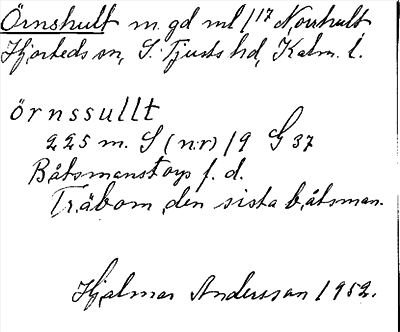 Örnshult m gd ml /17 Norrhult
Hjorteds sn, S. Tjusts hd, Kalm. l.
örnssullt
225 m. S (nr) /9 G 37
Båtsmanstorp f. d.
Träbom den sista båtsman.
Hjalmar Andersson 1952.